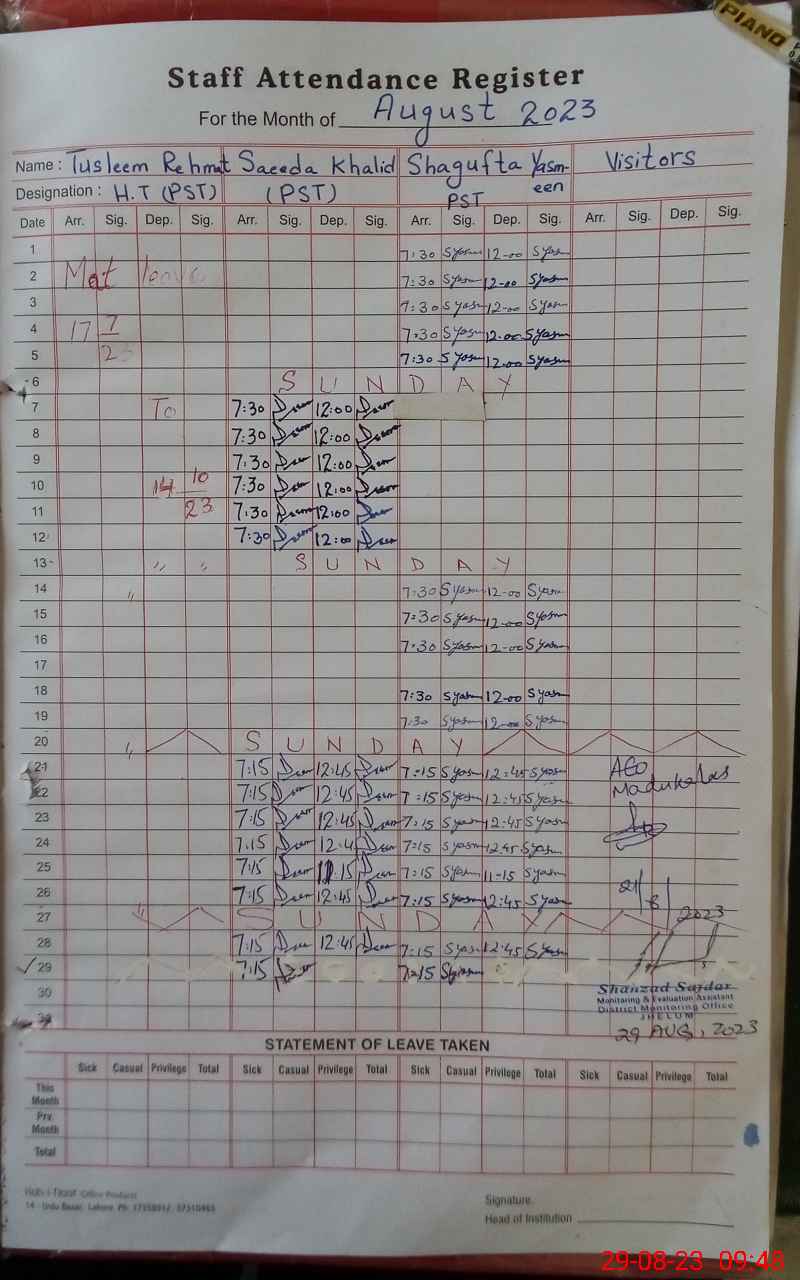 PIANO
Staff Attendance Register
For the Month of August 2023
Name : Tusleem Rehmat Saeeda Khalid Shagufta Yasmeen Visitors
Designation : H.T (PST) (PST) PST
Date Arr. Sig. Dep. Sig. Arr. Sig. Dep. Sig. Arr. Sig. Dep. Sig. Arr. Sig. Dep. Sig.
1 7:30 Syasm 12-00 Syasm
2 Mat leave 7:30 Syasm 12-00 Syasm
3 7:30 Syasm 12-00 Syasm
4 17 7 7:30 Syasm 12.00 Syasm
5 23 7:30 Syasm 12.00 Syasm
6 SUNDAY
7 To 7:30 12:00
8 7:30 12:00
9 7:30 12:00
10 14 10 7:30 12:00
11 23 7:30 12:00
12 7:30 12:00
13 " " SUNDAY
14 " 7:30 Syasm 12-00 Syasm
15 7:30 Syasm 12-00 Syasm
16 7:30 Syasm 12-00 Syasm
17
18 7:30 Syasm 12-00 Syasm
19 7:30 Syasm 12-00 Syasm
20 " SUNDAY
21 7:15 12:45 7:15 Syasm 12:45 Syasm AEO
22 7:15 12:45 7:15 Syasm 12:45 Syasm Madukalas
23 7:15 12:45 7:15 Syasm 12:45 Syasm
24 7:15 12:4 7:15 Syasm 12:45 Syasm
25 7:15 11:15 7:15 Syasm 11-15 Syasm
26 7:15 12:45 7:15 Syasm 12:45 Syasm 21/8/2023
27 " SUNDAY
28 7:15 12:45 7:15 Syasm 12:45 Syasm
29 7:15 7:15 Syasm
Shahzad Sardar
30 Monitoring & Evaluation Assistant
District Monitoring Office
JHELUM
29 AUG, 2023
STATEMENT OF LEAVE TAKEN
Sick Casual Privilege Total Sick Casual Privilege Total Sick Casual Privilege Total Sick Casual Privilege Total
This Month
Prv. Month
Total
Office Products
14 - Urdu Bazar, Lahore Ph:
Signature
Head of Institution
29-08-23 09:48